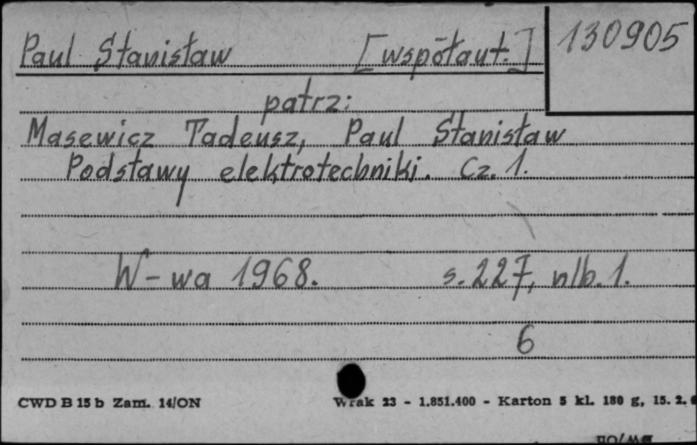 Paul Stanisław [współaut.] 130905
patrz:
Masewicz Tadeusz, Paul Stanisław
Podstawy elektrotechniki. Cz. 1.
W-wa 1968. s. 227, nlb. 1.
6
CWD B 15 b Zam. 14/ON Wrak 23 - 1.851.400 - Karton 5 kl. 180 g, 15. 2.